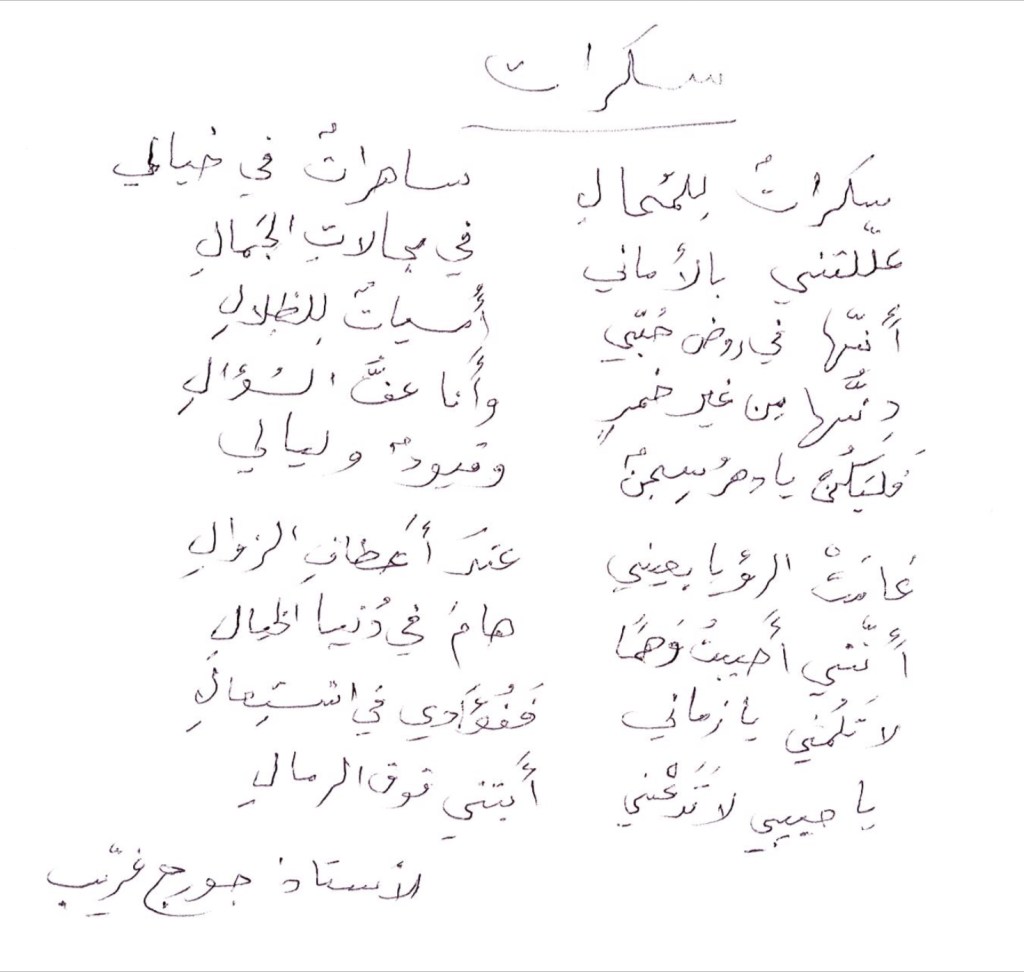 سكرات
سكراتٌ لِلمُحالِ ساهراتٌ في خيالي
علّلتني بالأماني في مجالاتِ الجَمالِ
أَنّها في روض حُبّي أُمسياتٌ لِلظِلالِ
دِنتُها مِن غير خمرٍ وأَنا عفُّ السُؤالِ
فَليَكُنْ يا دهرُ سِجنٌ وقيودٌ وليالي
غامَتْ الرؤيا بعيني عندَ أَعطافِ الزوالِ
أَنّني أَحببتُ وَهمًا هامَ في دُنيا الخيالِ
لا تَلُمني يا زماني فَفُؤَادي في اشتِعالِ
يا حبيبي لا تَدَعْني أَبتني فوق الرمالِ
الأستاذ جورج غريّب